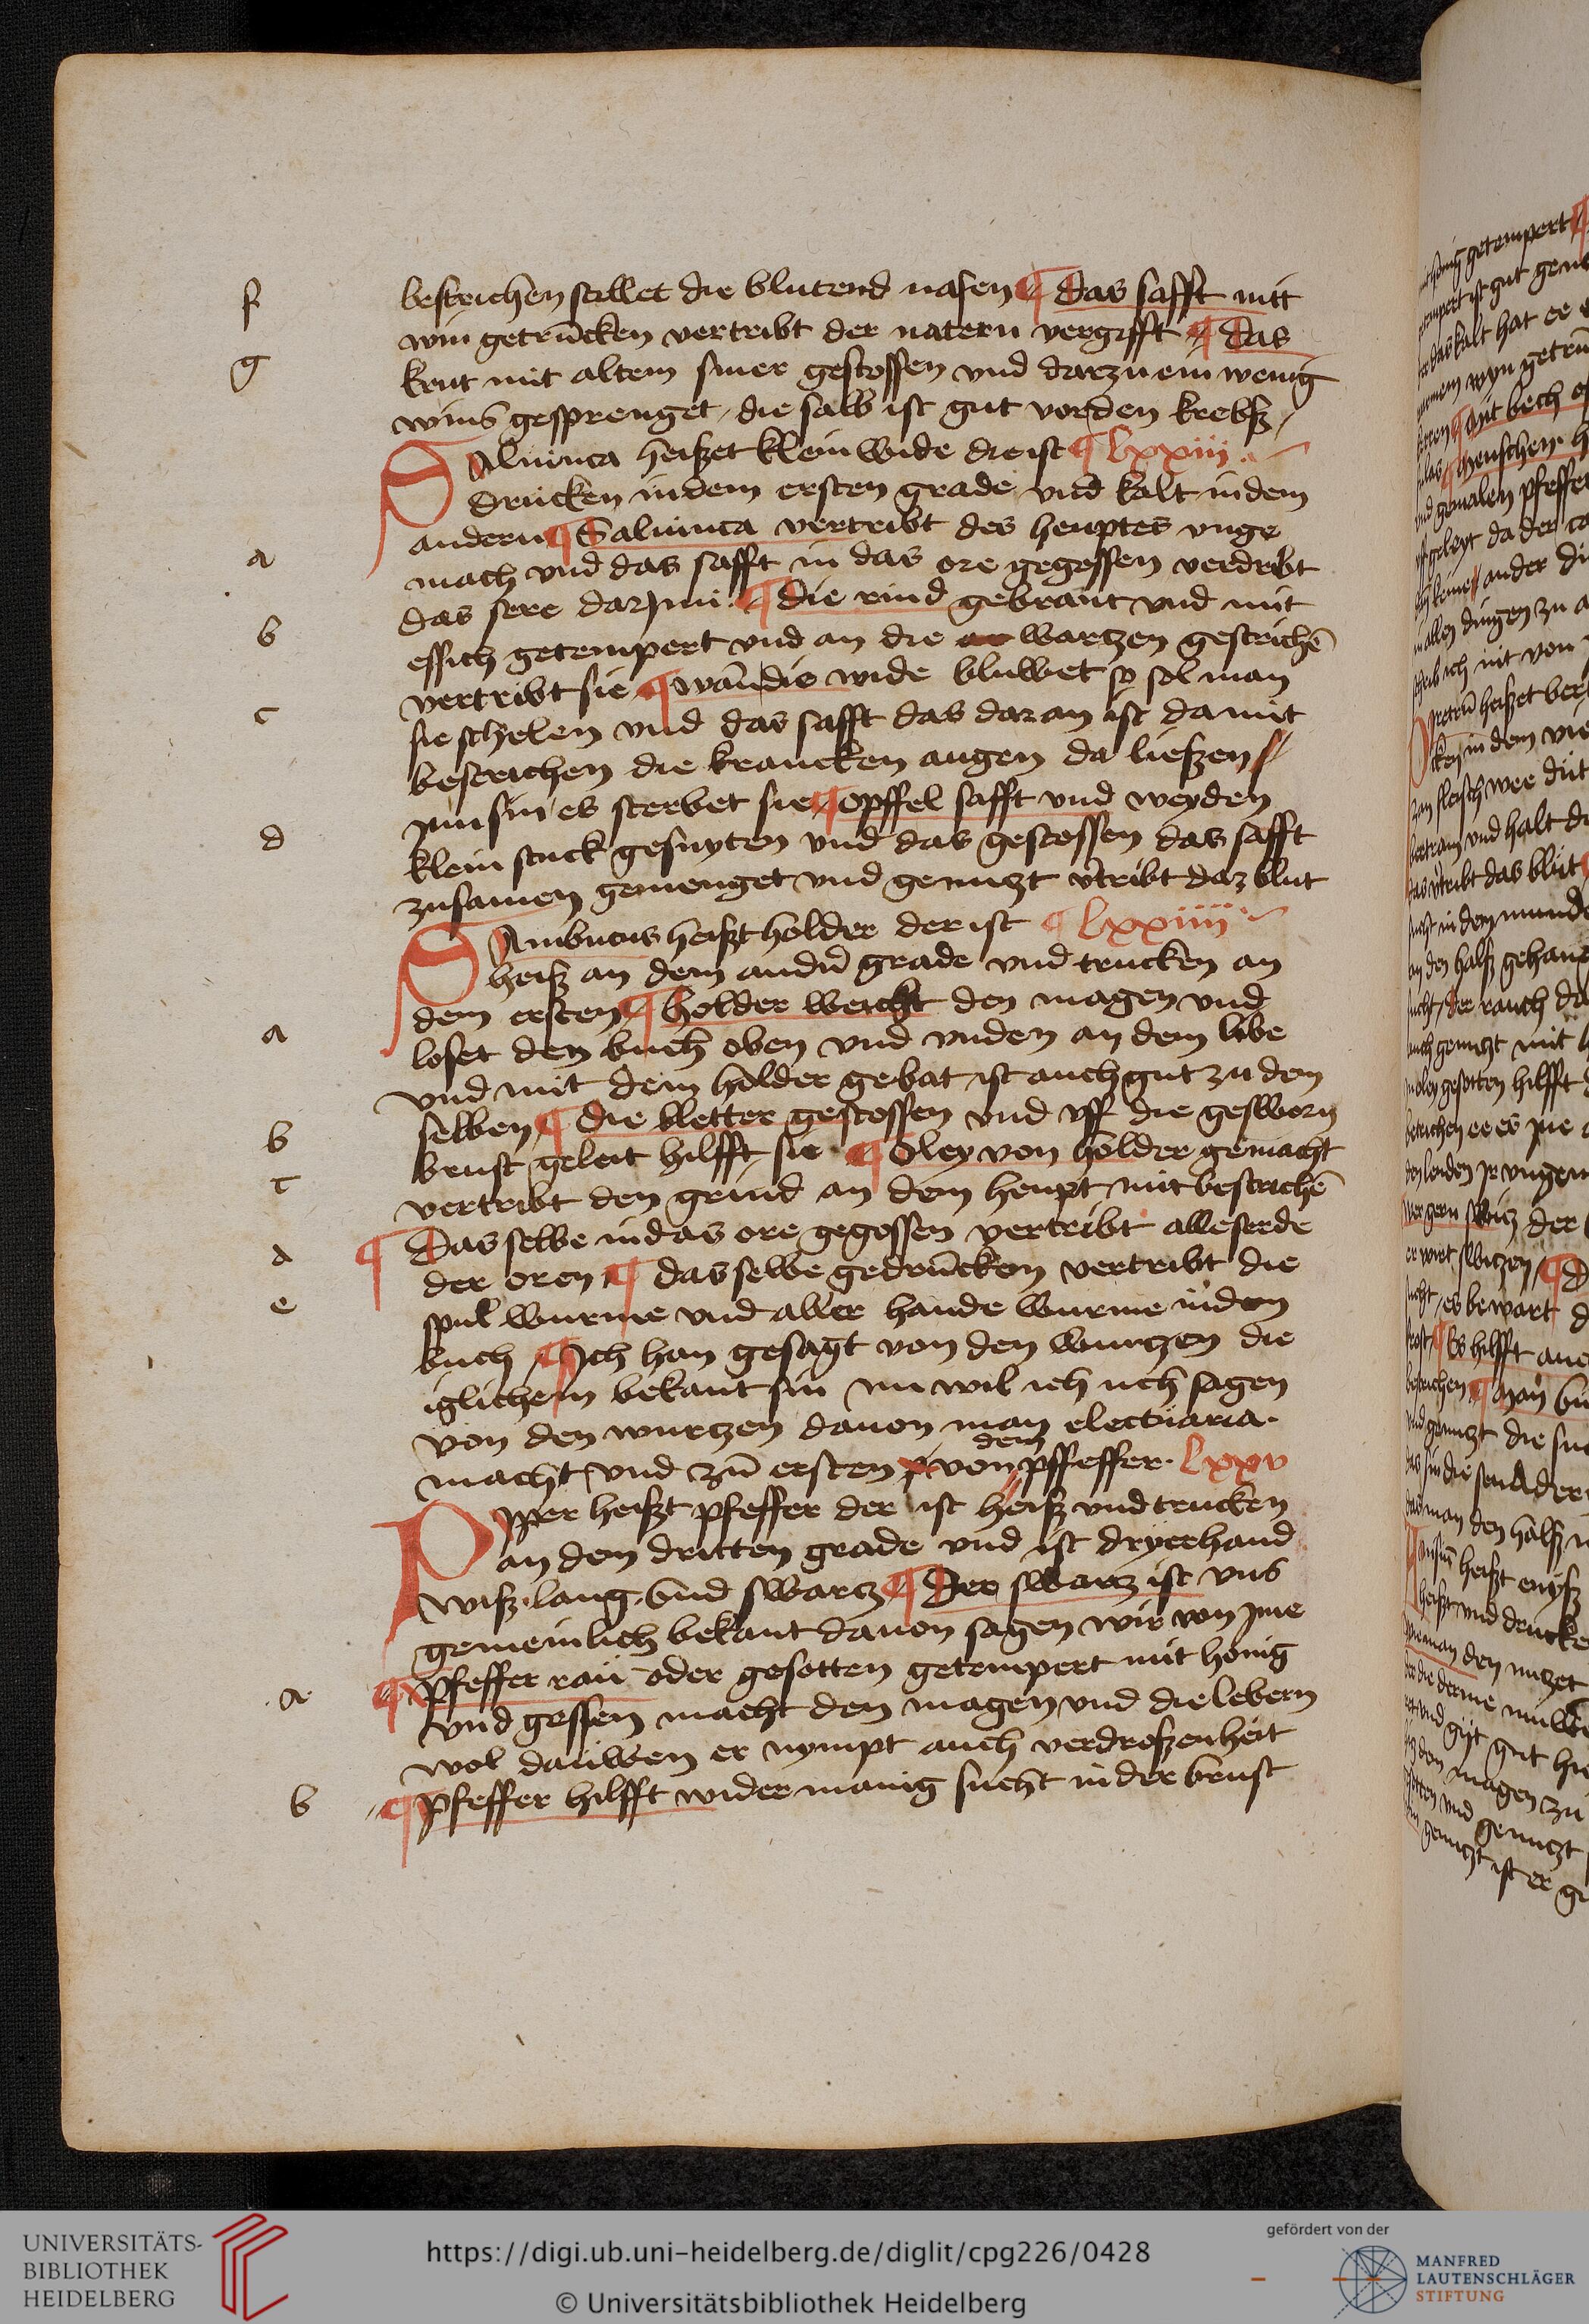 f
bestrichen stillet die blutend nasen ¶ das safft mitt
win getrūcken vertribt der natern vergifft ¶ das
g
krut mit altem smer gestossen vnd darzu ein wenig
wins gesprenget / die salb ist gut vor den krebsz /
SAliunca heiszet klein wide die ist ¶ lxxiii.
drucken in dem ersten grade vnd kalt in dem
andern ¶ Saliunca vertribt des heuptes vnge
a
mach vnd das safft in das ore gegossen verdribt
das sere darinn ¶ die rind gebrant vnd mit
b
essich getempert vnd an die wartzen gestrichē
vertribt sie ¶ wan die wide bluwet so sol man
c
sie schelen vnd das safft das dar an ist da mit
bestrichen die krancken augen da lieszen
jnn sin es sterbet sie ¶ opffel safft vnd weyden
d
klein stuck gesnyten vnd das gestossen das safft
zusamen gemenget vnd genutzt v̄tribt daz blut
SAmbucus heiszt holder der ist ¶ lxxiiii
heisz an dem andn̄ grade vnd trucken an
dem ersten ¶ holder weicht den magen vnd
a
loset den buch oben vnd vnden an dem libe
vnd mit dem holder gebat ist auch gut zu dem
selben ¶ die bletter gestossen vnd vff die gesworn
b
brust geleit hilfft sie ¶ Oley von holder gemacht
c
vertribt den grind an dem heupt mit bestrichē
¶ Das selbe in das ore gegossen vertribt alle serde
d
der oren ¶ das selbe gedrūcken vertribt die
e
spul wurme vnd aller hande wurme in dem
buch ¶ Ich han gesagt von den wurtzen die
iglichem bekant sin nu wil ich uch sagen
von den wurtzen dauon man electuaria.
macht vnd zū ersten von dem pffeffer. lxxv
PIper heiszt pfeffer der ist heisz vnd trucken
an dem dritten grade vnd ist dryerhand
wisz . lang . vnd swartz ¶ Der swartz ist vns
gemeinlich bekant dauon sagen wir von jme
a
¶ pfeffer rau oder gesotten getempert mit honig
vnd gessen macht den magen vnd die lebern
wol dauwen er nympt auch verdroszenheit
b
¶ pfeffer hilfft wider manig sucht in der brust
UNIVERSITÄTS-
BIBLIOTHEK
HEIDELBERG
https://digi.ub.uni-heidelberg.de/diglit/cpg226/0428
© Universitätsbibliothek Heidelberg
gefördert von der
MANFRED
LAUTENSCHLÄGER
STIFTUNG